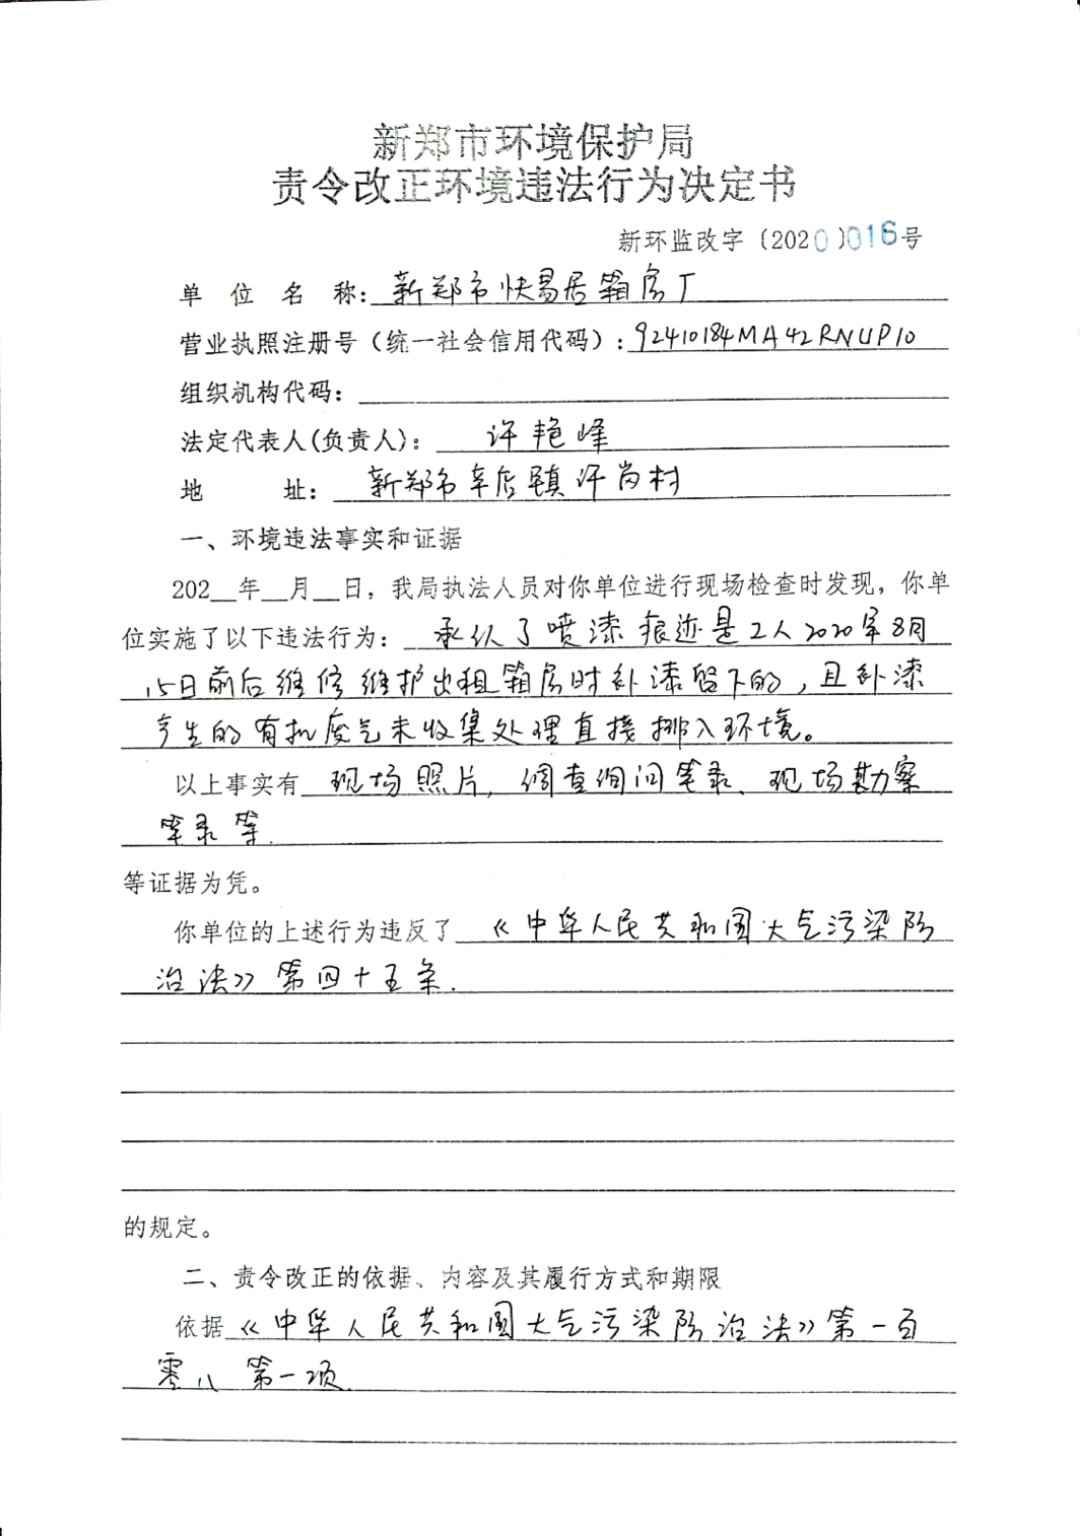 新郑市环境保护局
责令改正环境违法行为决定书
新环监改字〔2020〕016号
单位名称：新郑市快易居箱房厂
营业执照注册号（统一社会信用代码）：92410184MA42RNUP10
组织机构代码：
法定代表人(负责人)：许艳峰
地址：新郑市辛店镇许岗村
一、环境违法事实和证据
202__年__月__日，我局执法人员对你单位进行现场检查时发现，你单
位实施了以下违法行为：承认了喷漆痕迹是工人2020年8月
15日前后维修维护出租箱房时补漆留下的，且补漆
产生的有机废气未收集处理直接排入环境。
以上事实有现场照片，调查询问笔录、现场勘察
笔录等.
等证据为凭。
你单位的上述行为违反了《中华人民共和国大气污染防
治法》第四十五条.
的规定。
二、责令改正的依据、内容及其履行方式和期限
依据《中华人民共和国大气污染防治法》第一百
零八第一项.